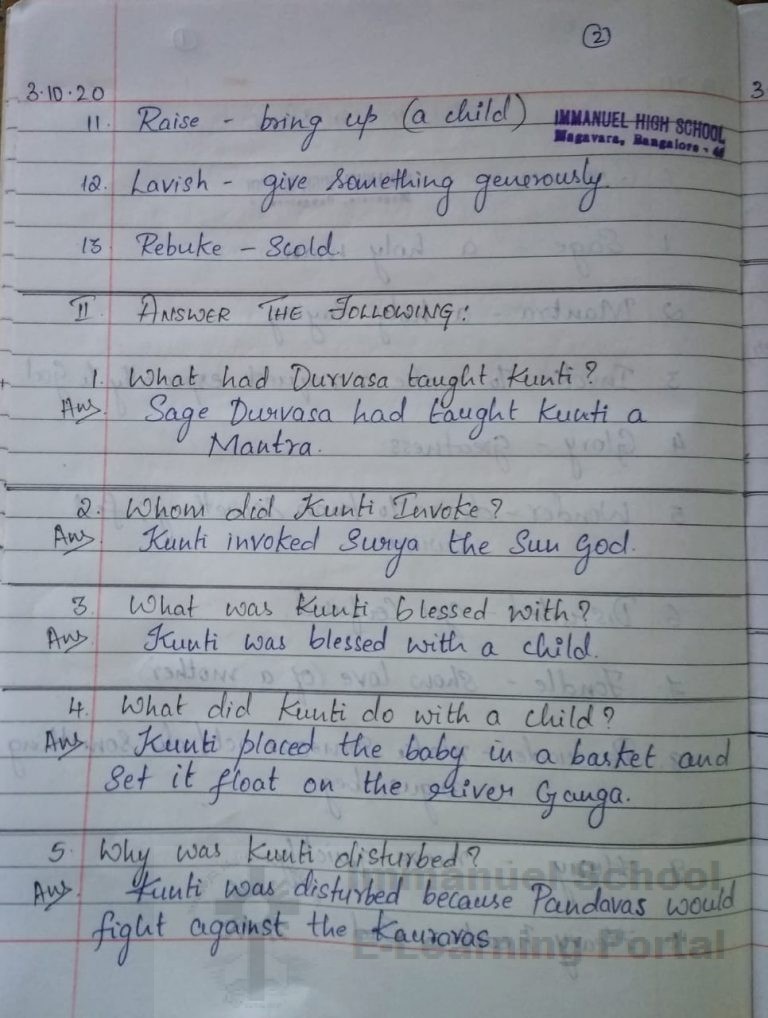 2
3.10.20
3
11. Raise - bring up (a child)
IMMANUEL HIGH SCHOOL
Nagavara, Bangalore - 45
12. Lavish - give something generously.
13. Rebuke - Scold.
II. ANSWER THE FOLLOWING:
1. What had Durvasa taught Kunti?
Ans. Sage Durvasa had taught Kunti a
Mantra.
2. Whom did Kunti Invoke?
Ans. Kunti invoked Surya the Sun God.
3. What was Kunti blessed with?
Ans. Kunti was blessed with a child.
4. What did Kunti do with a child?
Ans. Kunti placed the baby in a basket and
Set it float on the river Ganga.
5. Why was Kunti disturbed?
Immanuel School
Ans. Kunti was disturbed because Pandavas would
fight against the Kauravas
E-Learning Portal